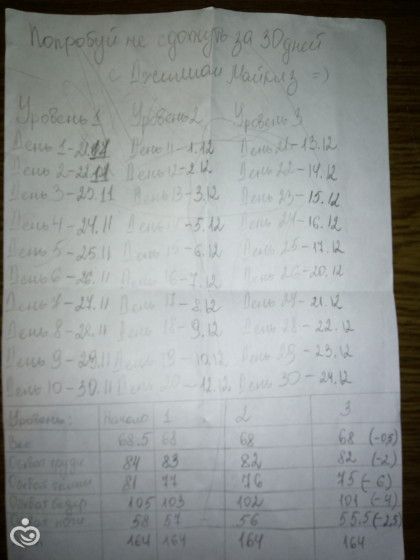 Попробуй не сдохнуть за 30 дней
с Джилиан Майклз =)
Уровень 1 Уровень 2 Уровень 3
День 1-21.11 День 11-1.12 День 21-13.12
День 2-22.11 День 12-2.12 День 22-14.12
День 3-23.11 День 13-3.12 День 23-15.12
День 4-24.11 День 14-5.12 День 24-16.12
День 5-25.11 День 15-6.12 День 25-17.12
День 6-26.11 День 16-7.12 День 26-20.12
День 7-27.11 День 17-8.12 День 27-21.12
День 8-28.11 День 18-9.12 День 28-22.12
День 9-29.11 День 19-10.12 День 29-23.12
День 10-30.11 День 20-12.12 День 30-24.12
Уровень: начало 1 2 3
Вес 68.5 68 68 68 (-0,5)
Обхват груди 84 83 82 82 (-2)
Обхват талии 81 77 76 75 (-6)
Обхват бедер 105 103 102 101 (-4)
ноги 58 57 56 55.5 (-2.5)
164 164 164 164